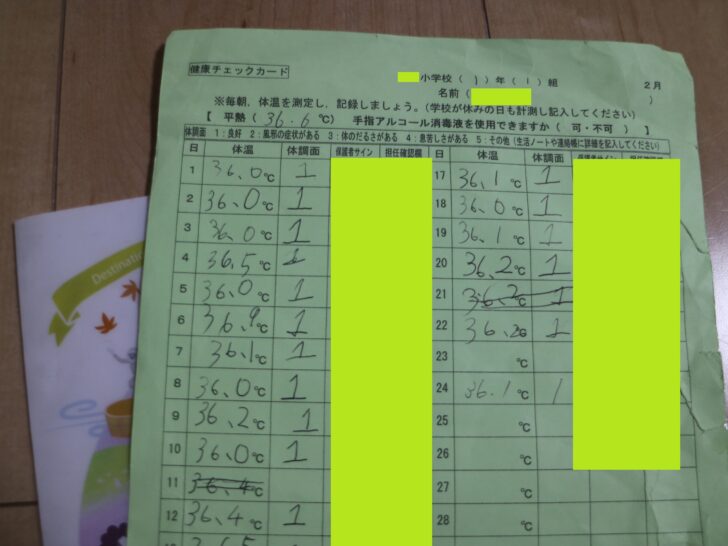 健康チェックカード
小学校（ 1 ）年（ 1 ）組 2月
名前（ ）
※毎朝、体温を測定し、記録しましょう。（学校が休みの日も計測し記入してください）
【 平熱（ 36.6 ℃） 手指アルコール消毒液を使用できますか（ 可・不可 ）】
体調面 1：良好 2：風邪の症状がある 3：体のだるさがある 4：息苦しさがある 5：その他（生活ノートや連絡帳に詳細を記入してください）
日 体温 体調面 保護者サイン 担任確認欄 日 体温 体調面
1 36.0℃ 1 17 36.1℃ 1
2 36.0℃ 1 18 36.0℃ 1
3 36.0℃ 1 19 36.1℃ 1
4 36.5℃ 1 20 36.2℃ 1
5 36.0℃ 1 21 36.2℃ 1
6 36.9℃ 1 22 36.26℃ 1
7 36.1℃ 1 23 ℃
8 36.0℃ 1 24 36.1℃ 1
9 36.2℃ 1 25 ℃
10 36.0℃ 1 26 ℃
11 36.4℃ 27 ℃
12 36.4℃ 1 28 ℃
Destination